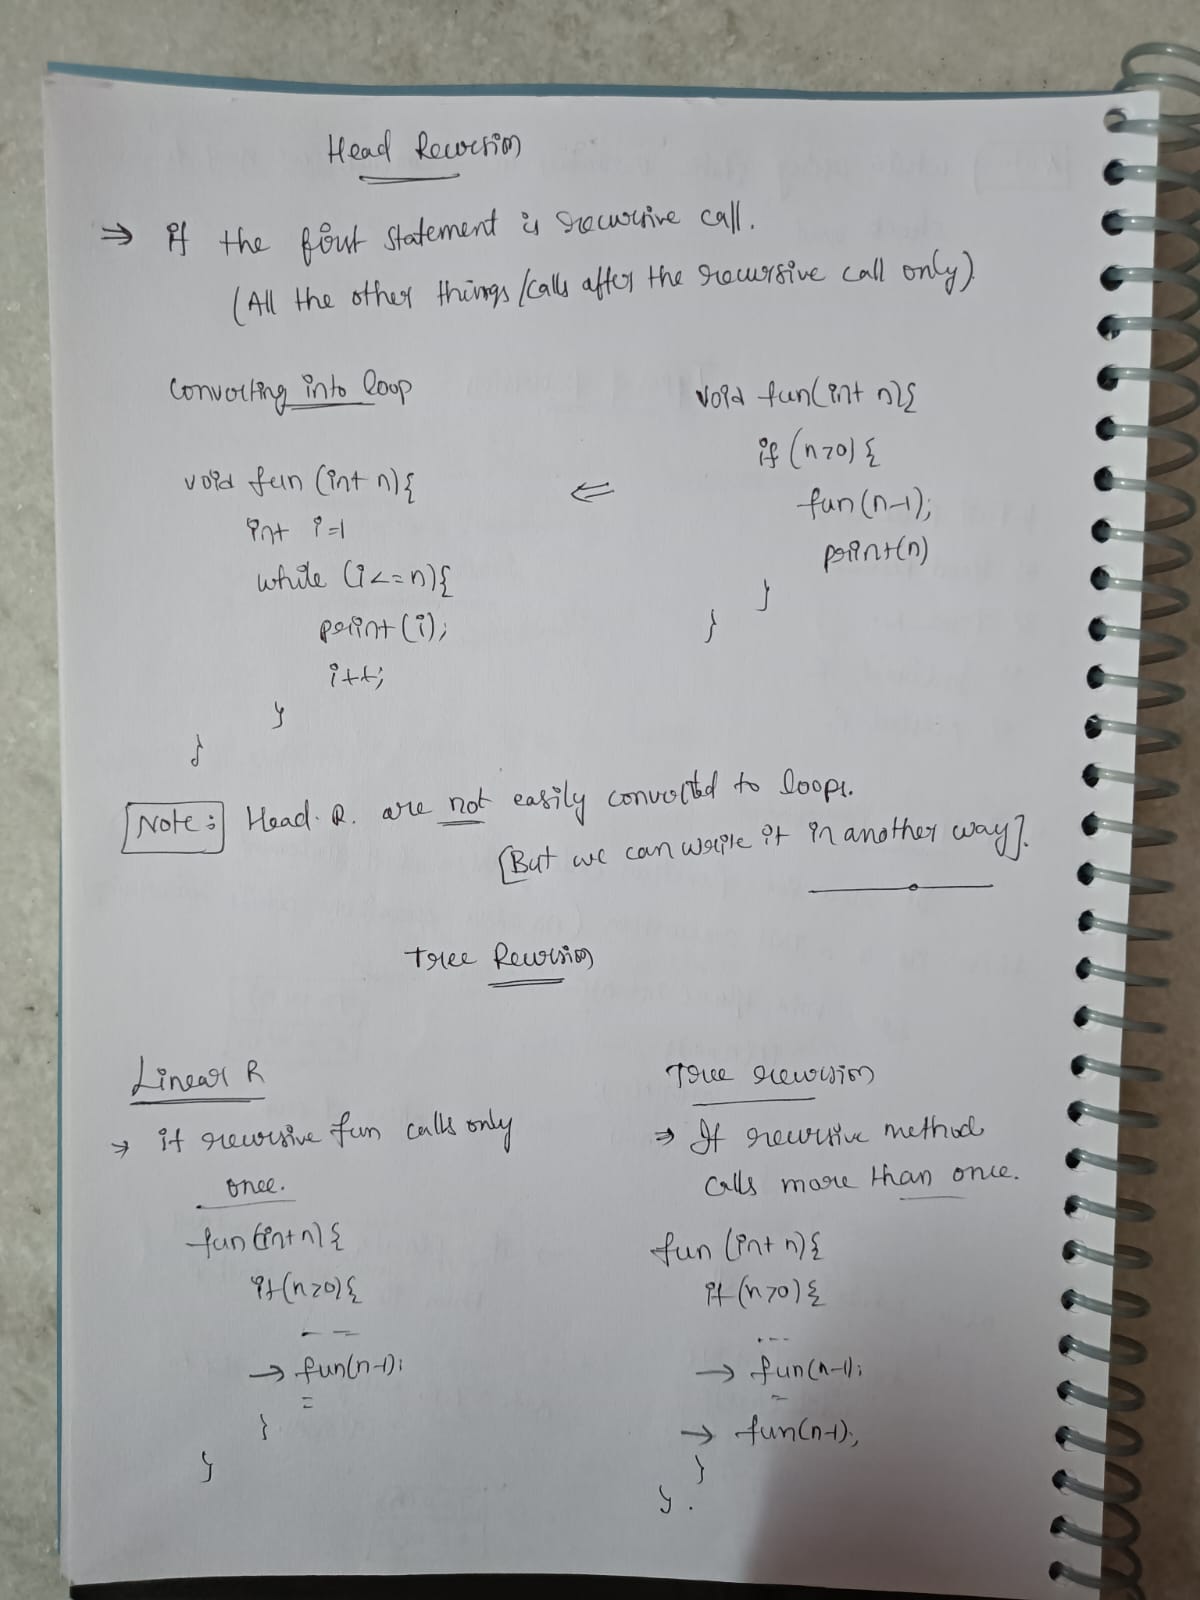 Head Recursion
⇒ if the first statement is recursive call.
(All the other things/calls after the recursive call only).
Converting into loop
void fun (int n){
int i=1
while (i<=n){
print(i);
i++;
}
}
⇐
void fun(int n){
if (n>0) {
fun(n-1);
print(n)
}
}
Note: Head. R. are not easily converted to loops.
[But we can write it in another way].
Tree Recursion
Linear R
→ if recursive fun calls only
once.
fun(int n){
if(n>0){
→ fun(n-1);
}
}
Tree recursion
⇒ If recursive method
calls more than once.
fun (int n){
if (n>0) {
...
→ fun(n-1);
→ fun(n-1);
}
}.